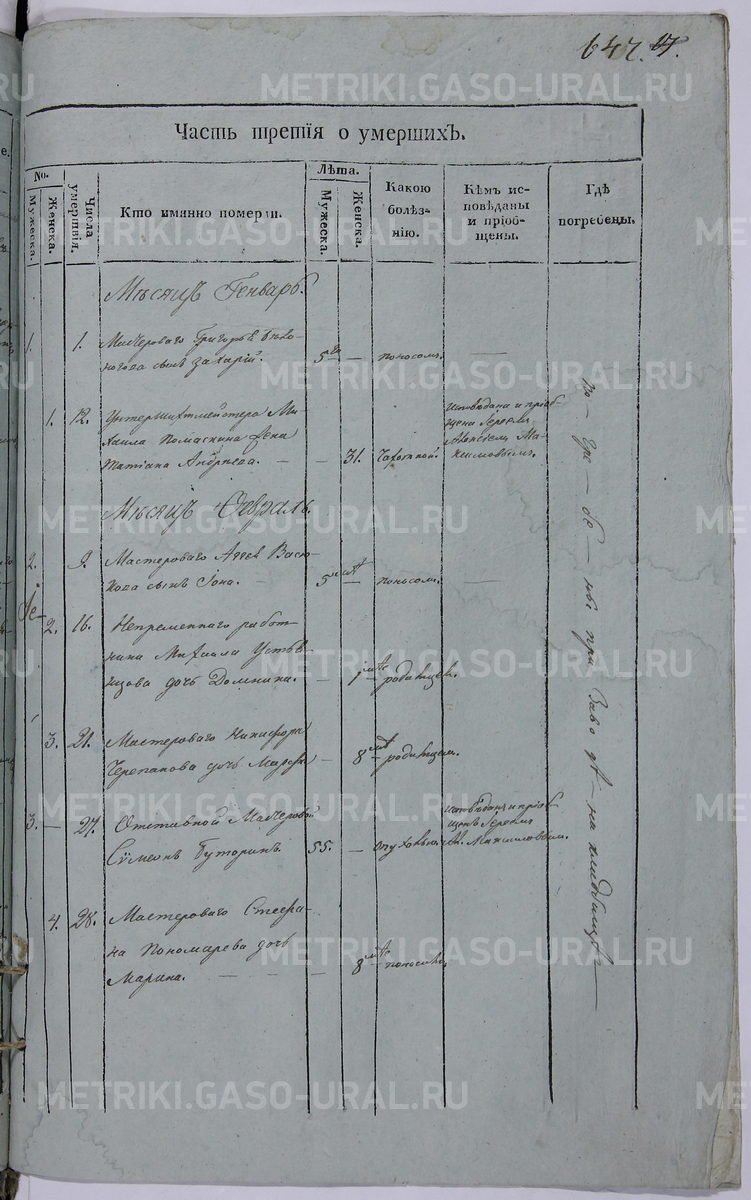 647. 17.
Часть третія о умершихЪ.
No.
Мужеска.
Женска.
Числа умертвія.
Кто имянно померли.
Лѣта.
Мужеска.
Женска.
Какою
болѣз-
нію.
Кѣмъ ис-
повѣданы
и пріоб-
щены.
Гдѣ
погребены.
Мѣсяцъ Генварь.
1. 1. Мастероваго Григорья
сынъ Захарій. 5 — поносомъ. —
1. 12. Унтершихтмейстера Ми-
хаила Помаскина жена
Татіана Андреева. — 31. Чахоткой.
Исповѣдана и пріоб-
щена Іереемъ
Алексѣемъ Ма-
ксимовымъ.
Мѣсяцъ Февраль.
2. 9. Мастероваго
сынъ Іона. — 5 — поносомъ. —
2. 16. Непременнаго работ-
ника Михаила Устьян-
цова дочь Домника. — 1 родимцемъ.
3. 21. Мастероваго Никифора
Черепанова дочь — 8 родимцемъ.
3. — 27. Отставной Мастеровой
Сѵмеонъ Буторинъ. 55. — опухолью.
Исповѣданъ и пріоб-
щенъ Іереемъ
Ал. Максимовымъ.
4. 28. Мастероваго Стефа-
на Пономарева дочь
Марина. — — — — 8 поносомъ.
По — гре — бе — ны при Заводѣ — на кладбищѣ —
METRIKI.GASO-URAL.RU